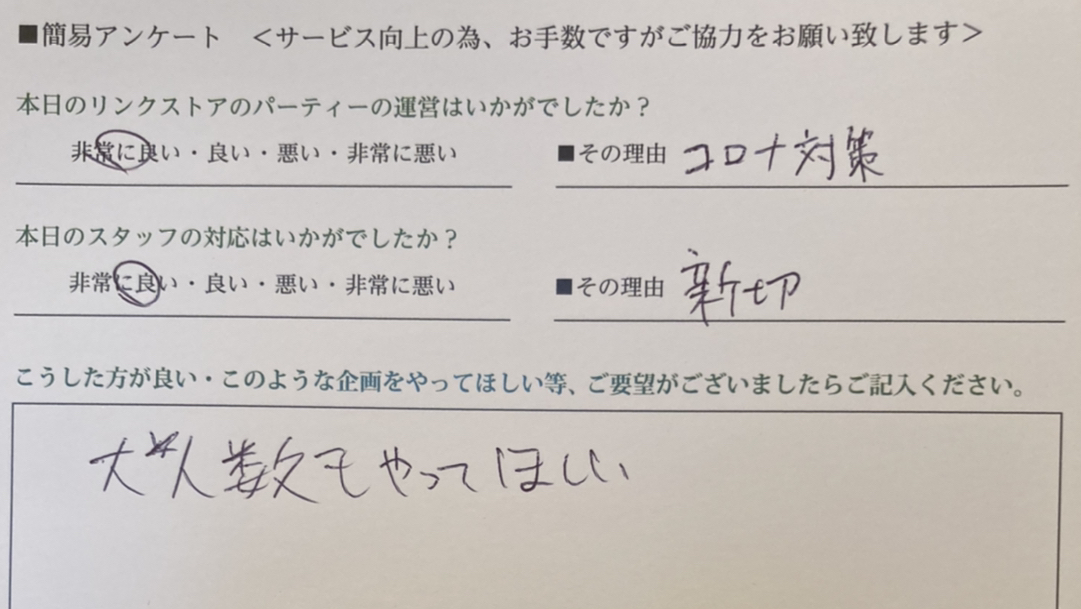 ■簡易アンケート <サービス向上の為、お手数ですがご協力をお願い致します>
本日のリンクストアのパーティーの運営はいかがでしたか?
非常に良い・良い・悪い・非常に悪い ■その理由 コロナ対策
本日のスタッフの対応はいかがでしたか?
非常に良い・良い・悪い・非常に悪い ■その理由 新切
こうした方が良い・このような企画をやってほしい等、ご要望がございましたらご記入ください。
大人数もやってほしい